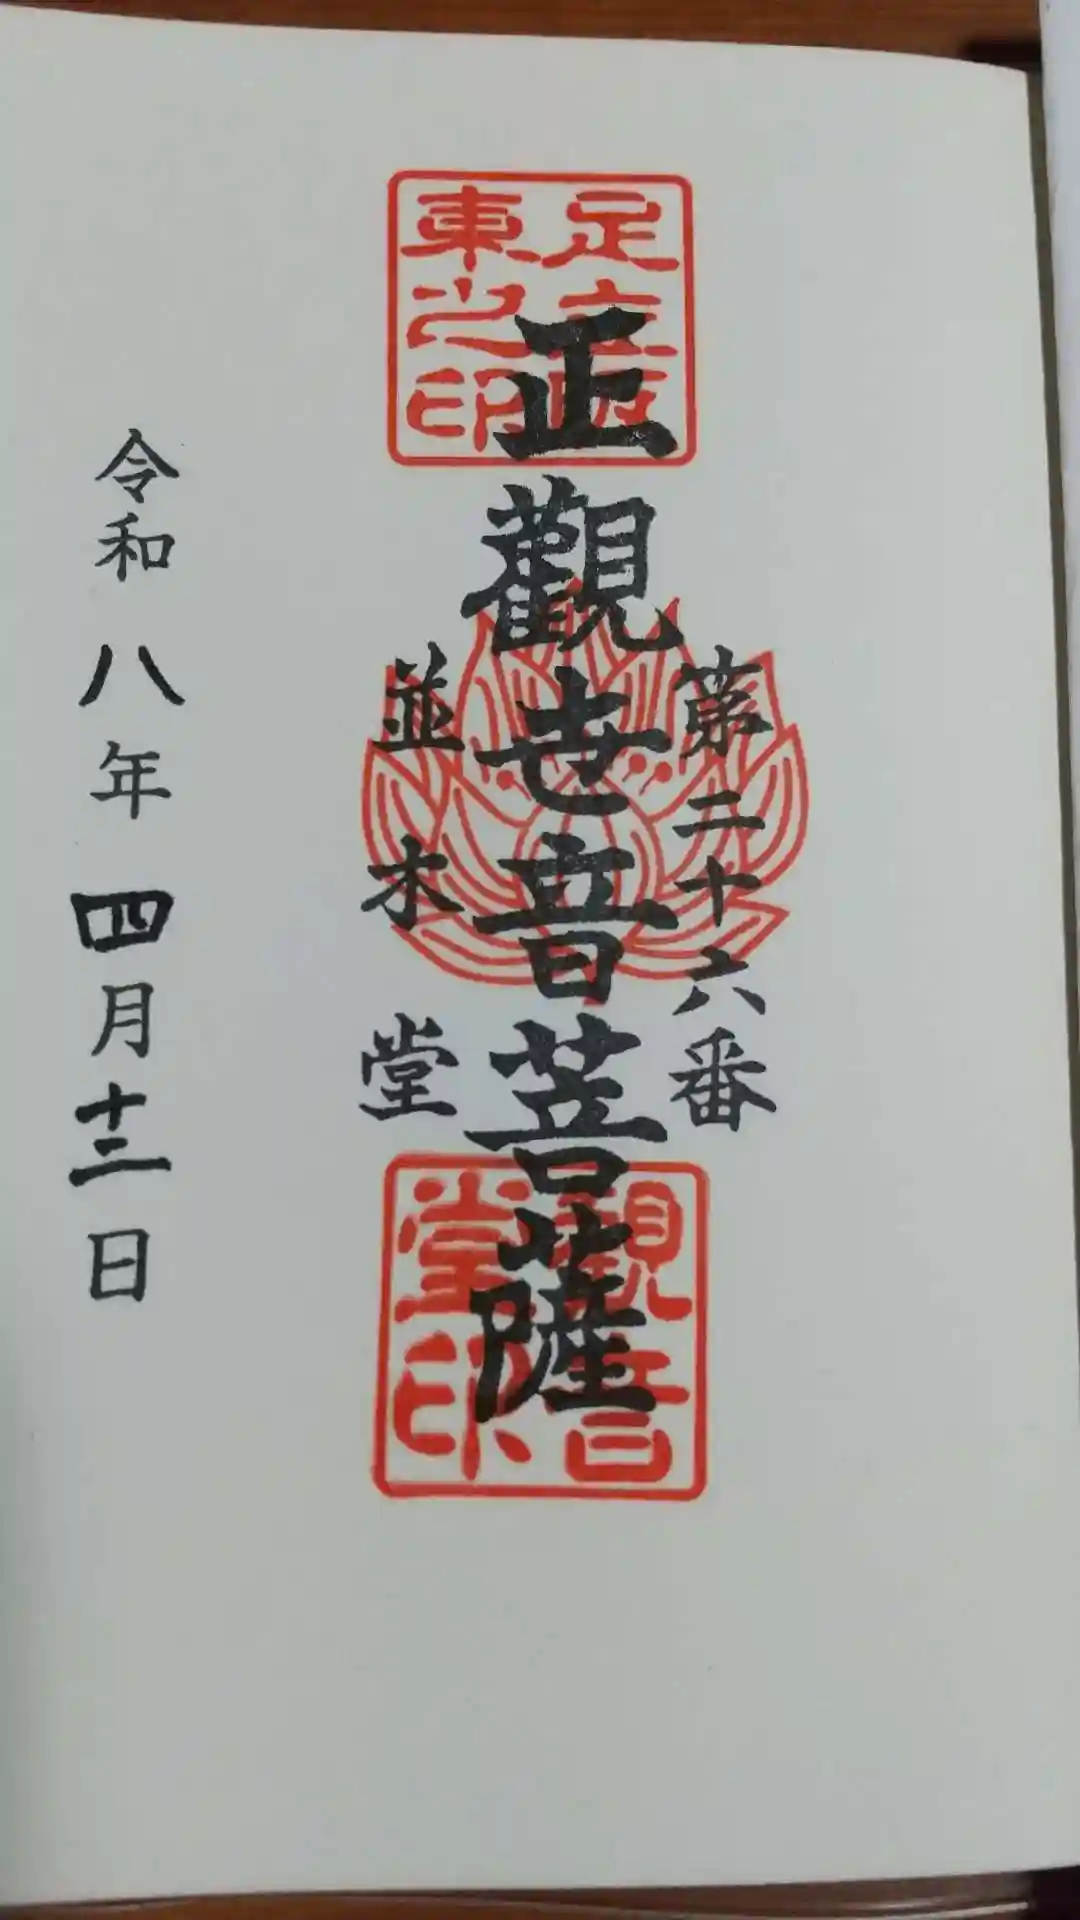 第二十六番
足立
東之印
正觀世音菩薩
觀音
堂印
並木堂
令和八年四月十二日